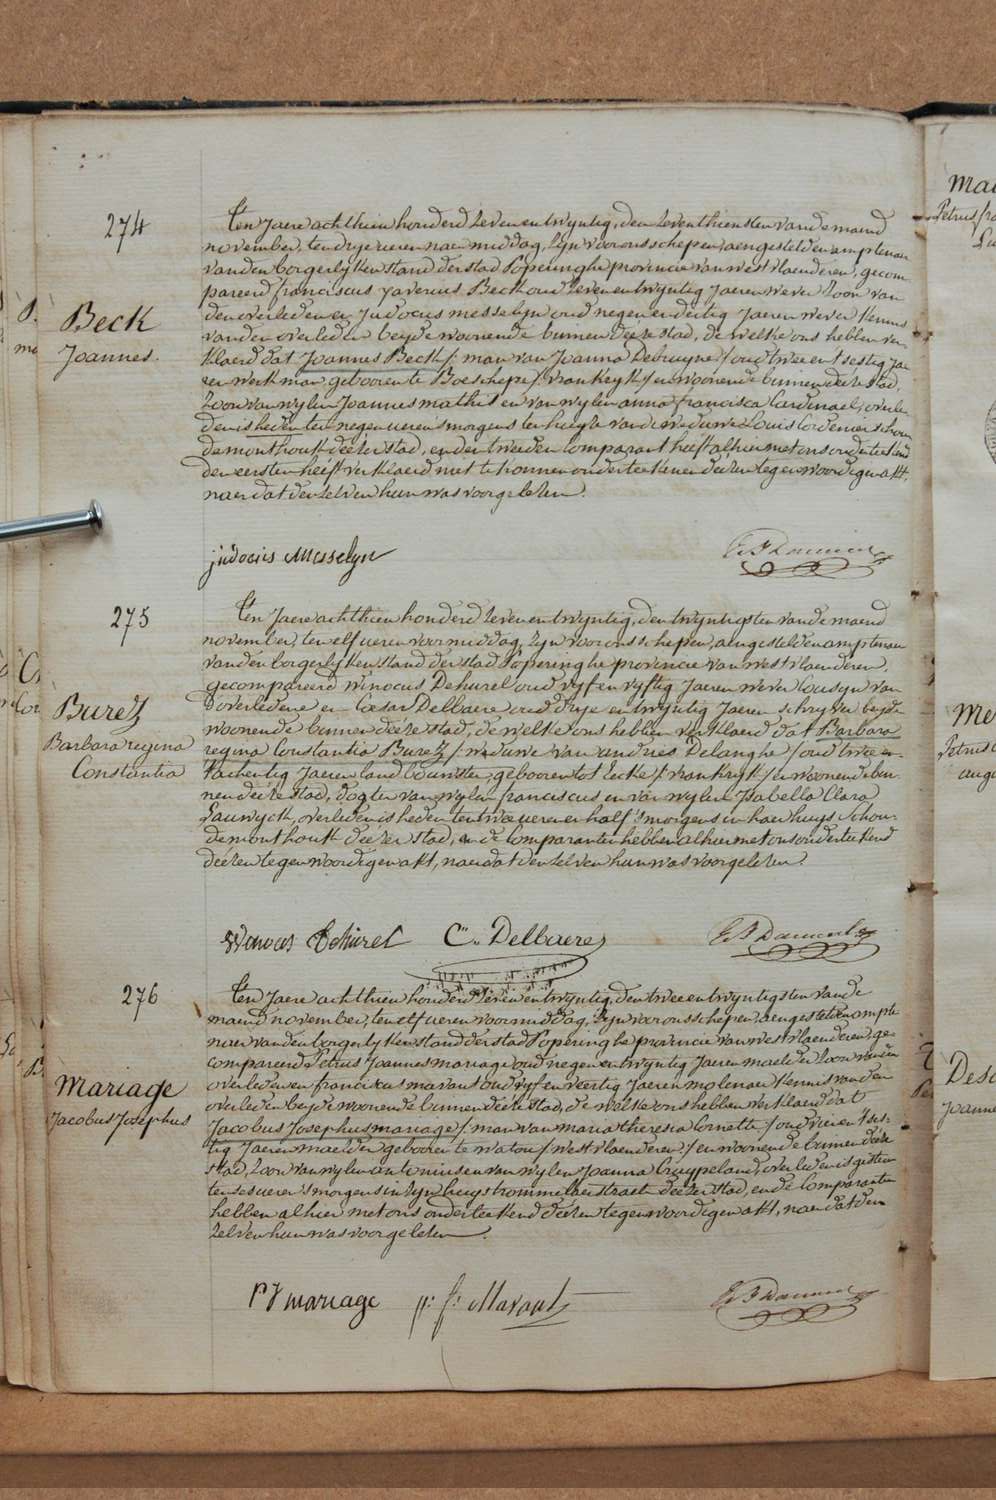 274
Beck
Joannes.
Ten Jaere achthien honderd zeven en twyntig, den zeventhiensten van de maend
november, ten drye ueren naer middag, zyn voor ons schepen, aengestelden amptenaer
van den borgerlyken stand der stad Poperinghe provincie van westvlaenderen, gecom-
pareerd franciscus xaverius Beck oud zeven en twyntig Jaeren wever zoon van
den overleden en Judocus messelyn oud negen en dertig Jaeren wever kennis
van den overleden beyde woonende binnen deeze stad, de welke ons hebben ver-
klaerd dat Joannes Beck / man van Joanna Debruyne / oud twee en tsestig Jae-
ren werkman gebooren te Boeschepe / vrankryk / en woonende binnen deeze stad,
zoon van wylen Joannes mathis en van wylen anna francisca Cardinael, overle-
den is heden ten negen ueren s'morgens ten huyze van de weduwe Louis Cordenier schou
demonthoutk deezer stad, en den tweeden Comparant heeft alhier met ons onderteekend
den eersten heeft verklaerd niet te konnen onderteekenen deezen tegenwoordigen akt,
naer dat den zelven hun was voorgelezen.
judocus Messelyn
275
Burez
Barbara regina
Constantia
Ten Jaere achthien honderd zeven en twyntig, den twyntigsten van de maend
november, ten elf ueren voormiddag, zyn voor ons schepen, aengestelden amptenaer
van den borgerlyken stand der stad Poperinghe provincie van westvlaenderen,
gecompareerd winocus Dehurel oud vyf en vyftig Jaeren wever Cousyn van
d'overledene en Cæsar Delbaere oud drye en twyntig Jaeren schryver beyde
woonende binnen deeze stad, de welke ons hebben verklaerd dat Barbara
regina Constantia Burez / weduwe van andries Delanghe / oud twee en
tachentig Jaeren landbouwster, gebooren tot Eecke / vrankryk / en woonende bin-
nen deeze stad, dogter van wylen franciscus en van wylen Isabella Clara
Lauwyck, overleden is heden ten twee ueren en half 's morgens in haer huys schou-
demonthoutk deezer stad, en de Comparanten hebben alhier met ons onderteekend
deezen tegenwoordigen akt, naer dat den zelven hun was voorgelezen.
Winocus Dehurel C.. Delbaere
276
Mariage
Jacobus Josephus
Ten Jaere achthien honderd zeven en twyntig, den twee en twyntigsten van de
maend november, ten elf ueren voormiddag, zyn voor ons schepen, aengestelden ampte-
naer van den borgerlyken stand der stad Poperinghe provincie van westvlaenderen, ge-
compareerd Petrus Joannes mariage oud negen en twyntig Jaeren maelder zoon van den
overleden en franciscus marant oud vyf en veertig Jaeren molenaer kennis van den
overleden beyde woonende binnen deeze stad, de welke ons hebben verklaerd dat
Jacobus Josephus mariage / man van maria theresia Cornette / oud vier en tses-
tig Jaeren maelder gebooren te watou / westvlaenderen / en woonende binnen deeze
stad, zoon van wylen antonius en van wylen Joanna Cruypeland, overleden is gisteren
ten ses ueren 's morgens in zyn huys trommelaerstraete deezer stad, en de Comparanten
hebben alhier met ons onderteekend deezen tegenwoordigen akt, naer dat den
zelven hun was voorgelezen.
PJ mariage p: f: Marant